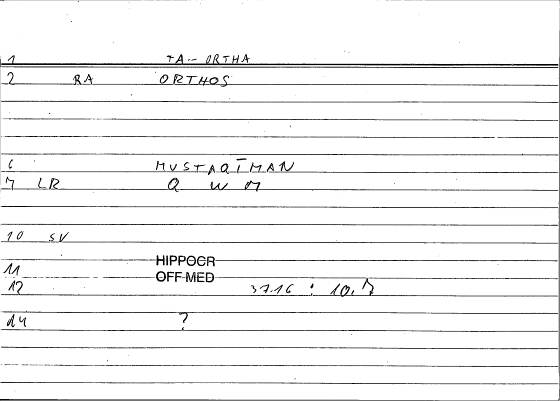 1 TA-ORTHA
2 RA ORTHOS
6 MUSTAQĪMAN
7 LR Q W M
10 SV
11 HIPPOCR
OFF MED
12 3716 : 10.7
14 ?